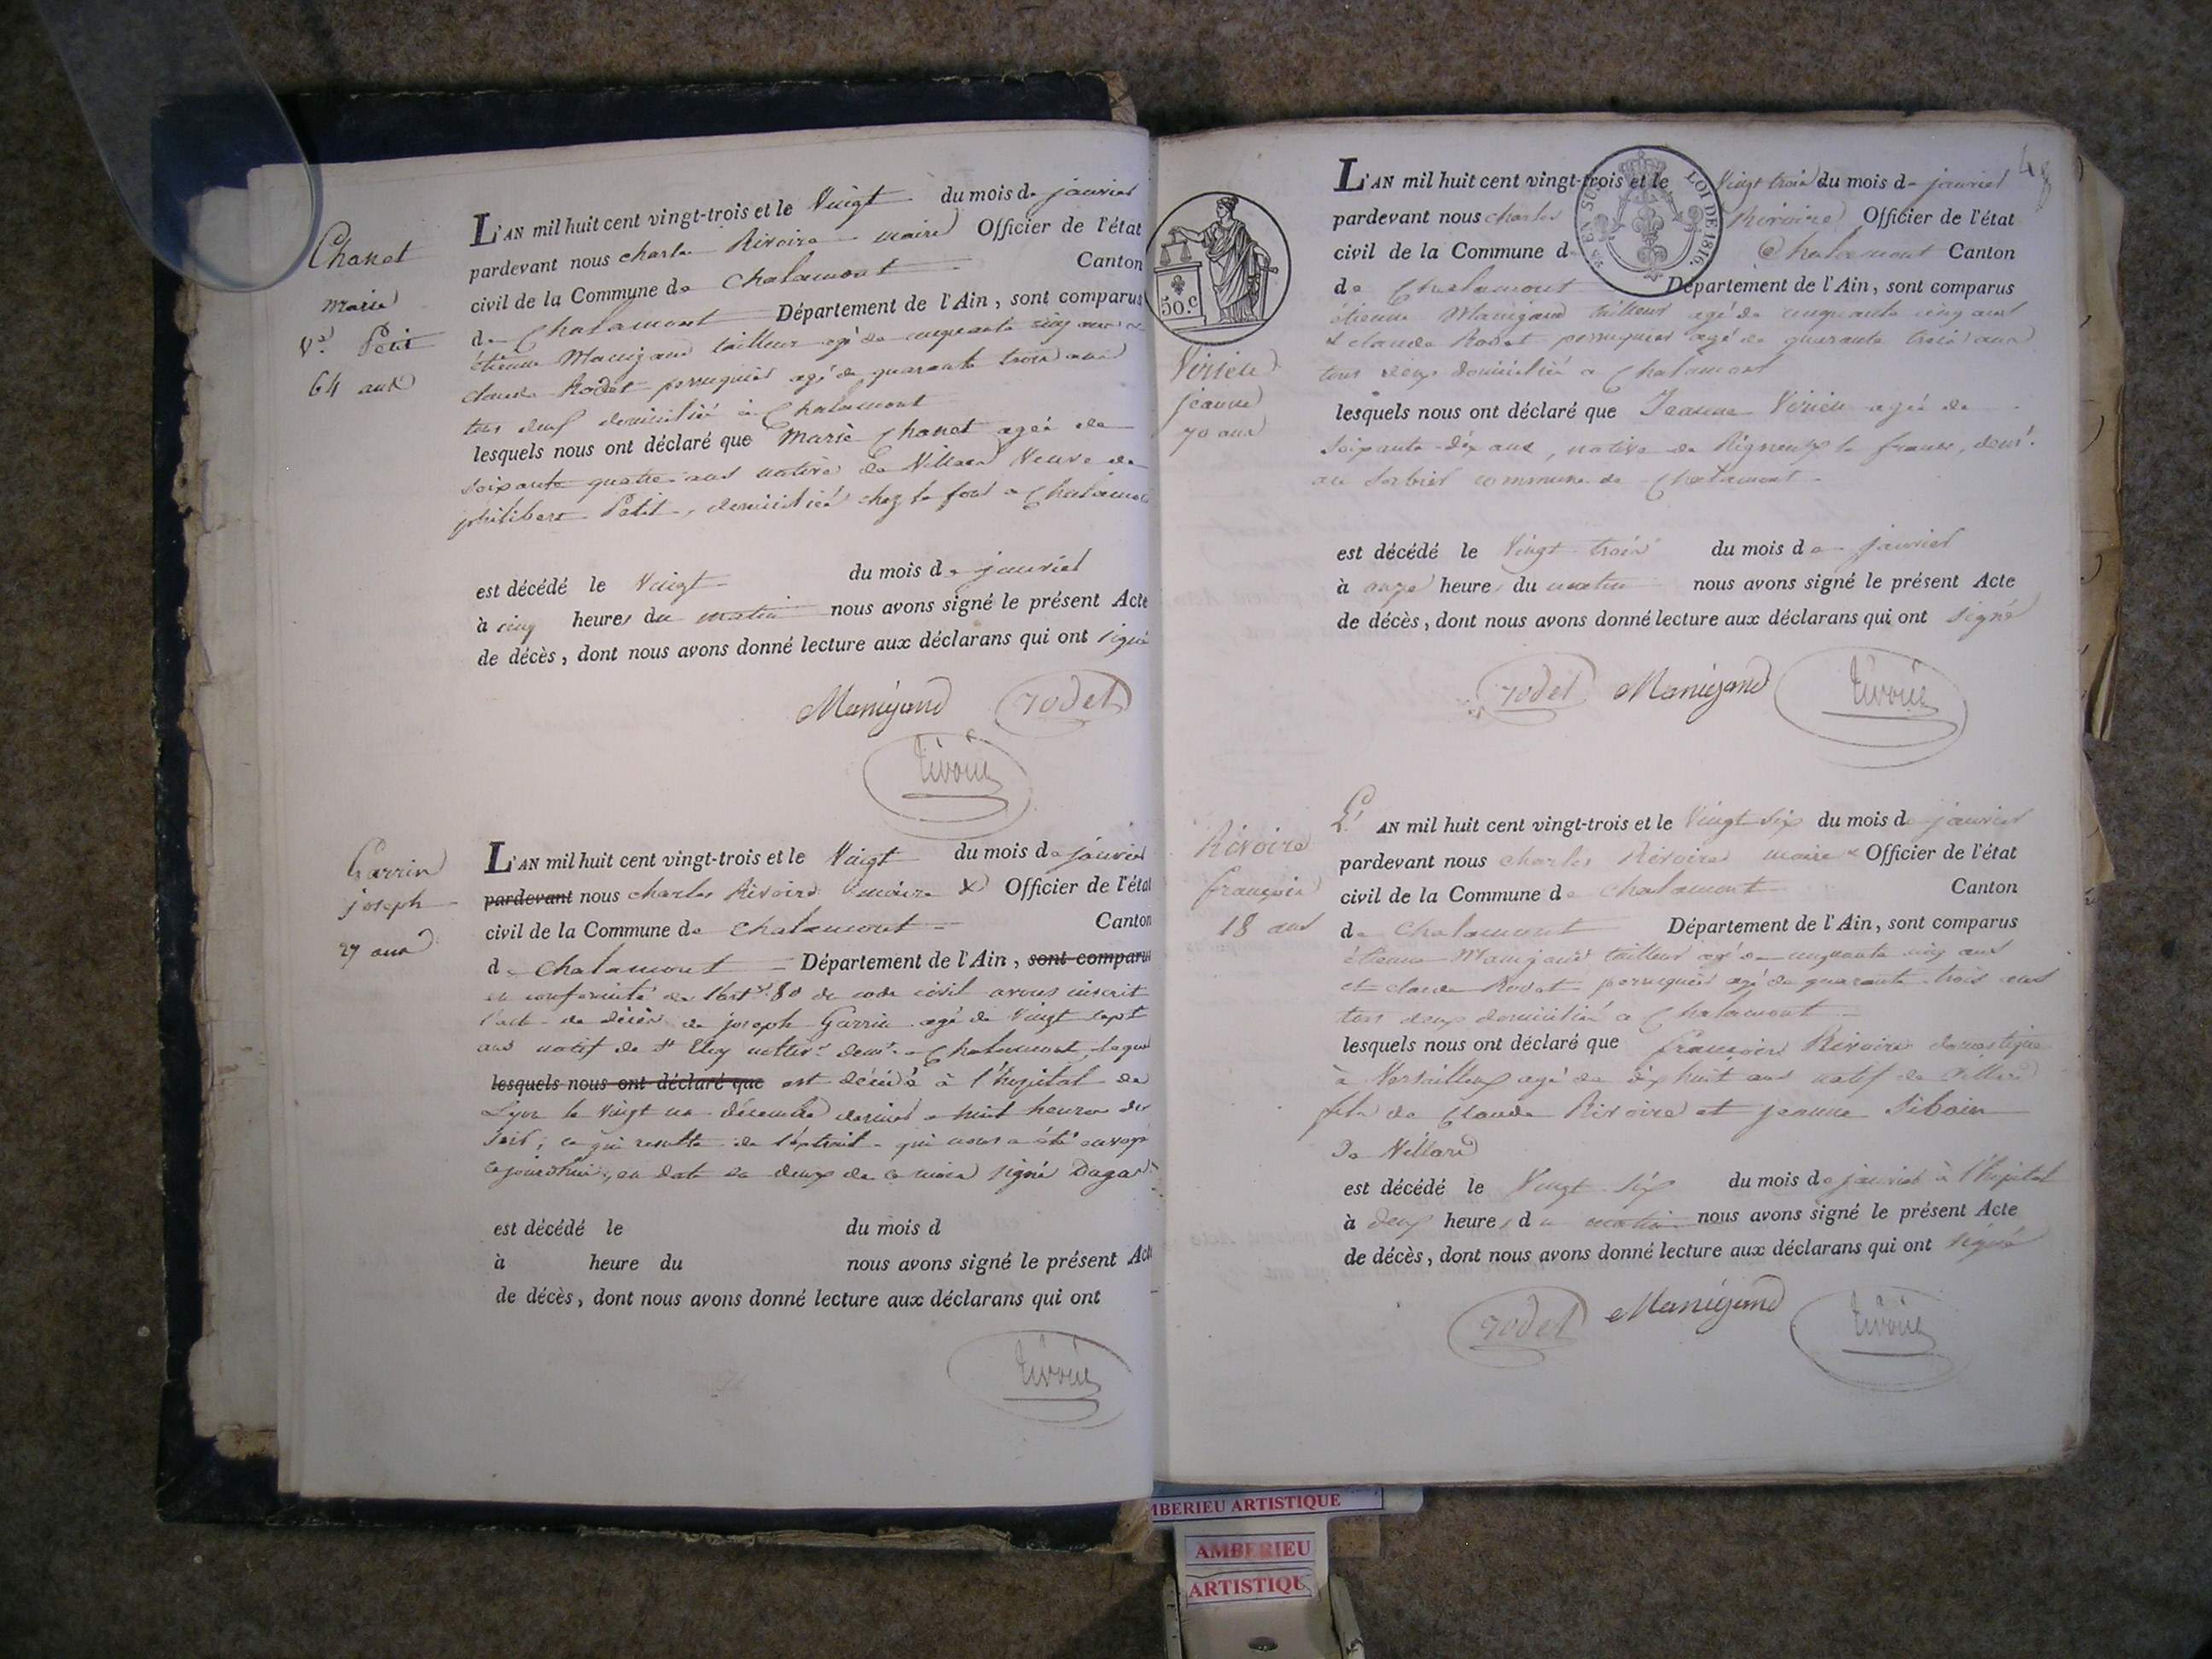 Chanet
marie
Ve. Petit
64 ans
L'AN mil huit cent vingt-trois et le Vingt du mois de janvier
pardevant nous charles Rivoire maire Officier de l'état
civil de la Commune de Chalamont Canton
de Chalamont Département de l'Ain, sont comparus
étienne Manigand tailleur agé de cinquante cinq ans et
claude Rodet perruquier agé de quarante trois ans
tous deux domicilié à Chalamont
lesquels nous ont déclaré que Marie Chanet agée de
soixante quatre ans native de Villard Veuve de
philibert Petit, domiciliée chez le fort a Chalamont
est décédé le Vingt du mois de janvier
à cinq heures du matin nous avons signé le présent Acte
de décès, dont nous avons donné lecture aux déclarans qui ont signé
Manigand rodet
Rivoire
Garrin
joseph
27 ans
L'AN mil huit cent vingt-trois et le Vingt du mois de janvier
pardevant nous charles Rivoire maire Officier de l'état
civil de la Commune de Chalamont Canton
de Chalamont Département de l'Ain, sont comparus
en conformité de l'art. 80 du code civil avons inscrit
l'acte de décès de joseph Garrin agé de Vingt sept
ans natif de St Eloy cultivr demt a Chalamont, lequel
lesquels nous ont déclaré que est décédé à l'hopital de
Lyon le Vingt un décembre dernier a huit heures du
soir; ce qui resulte de l'extrait qui nous a été envoyé
cejourdhui, en date du deux de ce mois signé Dagas
est décédé le du mois d
à heure du nous avons signé le présent Acte
de décès, dont nous avons donné lecture aux déclarans qui ont
Rivoire
48
50.c
EN SUS LOI DE 1816.
Virieu
jeanne
70 ans
L'AN mil huit cent vingt-trois et le Vingt trois du mois de janvier
pardevant nous charles Rivoire Officier de l'état
civil de la Commune de Chalamont Canton
de Chalamont Département de l'Ain, sont comparus
étienne Manigand tailleur agé de cinquante cinq ans
et claude Rodet perruquier agé de quarante trois ans
tous deux domicilié a Chalamont
lesquels nous ont déclaré que Jeanne Virieu agée de
soixante-dix ans, native de Rigneux le franc, domt.
au Sorbier commune de Chalamont
est décédé le Vingt trois du mois de janvier
à onze heures du matin nous avons signé le présent Acte
de décès, dont nous avons donné lecture aux déclarans qui ont signé
rodet Manigand Rivoire
Rivoire
françois
18 ans
L'AN mil huit cent vingt-trois et le Vingt six du mois de janvier
pardevant nous charles Rivoire maire Officier de l'état
civil de la Commune de Chalamont Canton
de Chalamont Département de l'Ain, sont comparus
étienne Manigand tailleur agé de cinquante cinq ans
et claude Rodet perruquier agé de quarante trois ans
tous deux domicilié a Chalamont
lesquels nous ont déclaré que françois Rivoire domestique
à Versailleux agé de dix huit ans natif de Villard
fils de Claude Rivoire et jeanne Siboin
De Villard
est décédé le Vingt six du mois de janvier à l'hopital
à deux heures du matin nous avons signé le présent Acte
de décès, dont nous avons donné lecture aux déclarans qui ont signé
rodet Manigand Rivoire
MBERIEU ARTISTIQUE
AMBERIEU
ARTISTIQU